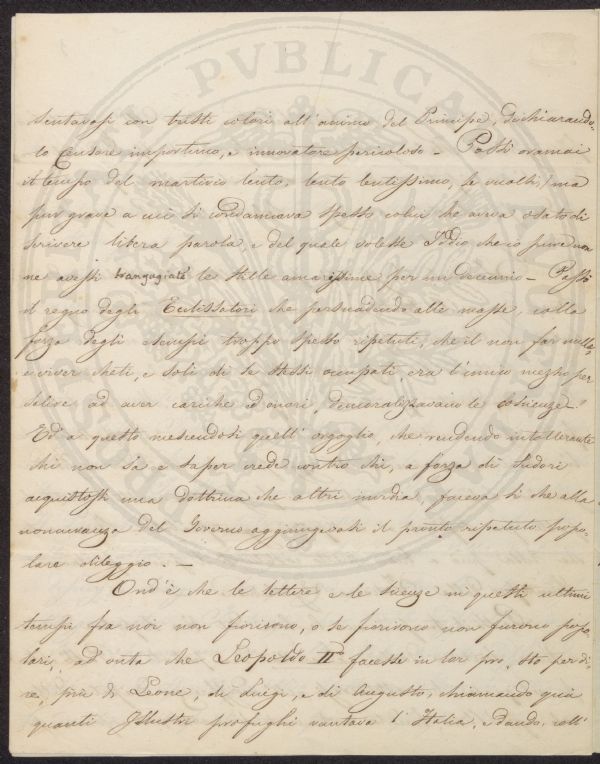 sentavasi con tristi colori all'animo del Principe, dichiarando-
lo Censore importuno, e innovatore pericoloso – Passò oramai
il tempo del martirio lento, lento lentissimo, se vuolsi, ma
pur grave a cui si condannava spesso colui che aveva osato di
scrivere libera parola, e del quale volesse Iddio che io pure non
ne avessi trangugiate le stille amarissime per un decennio – Passò
il regno degli Eclissatori che persuadendo alle masse, colla
forza degli esempi troppo spesso ripetuti, che il non far nulla,
e viver cheti, e soli di se stessi occupati era l'unico mezzo per
salire ad aver cariche ed onori, demoralizzavano le coscienze.
Ed a questo mescendosi quell'orgoglio, che rendendo intollerante
chi non sa e saper crede contro chi, a forza di sudori
acquistossi una dottrina che altri invidia, faceva sì che alla
noncuranza del Governo aggiungevasi il pronto ripetuto popo-
lare dileggio. –
Ond'è che le lettere e le scienze in questi ultimi
tempi fra noi non fiorirono, o se fiorirono non furono popo-
lari, ad onta che Leopoldo II.º facesse in lor pro, sto per di-
re, più di Leone, di Luigi, e di Augusto, chiamando quà
quanti Illustri profughi vantava l'Italia, e dando, coll'
PVBLICA